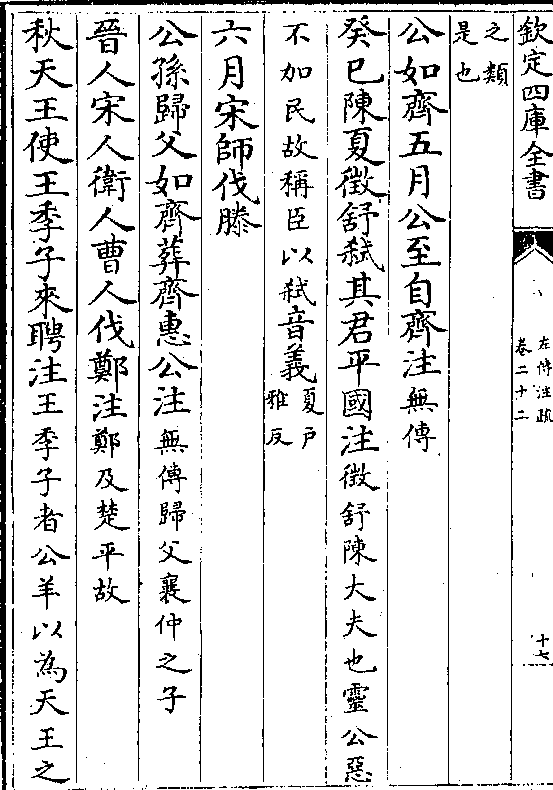 欽定四庫全書
左傳注疏
卷二十二
十七
之類
是也
公如齊五月公至自齊注無傳
癸巳陳夏徵舒弑其君平國注徵舒陳大夫也靈公惡
不加民故稱臣以弑音義夏戸
雅反
六月宋師伐滕
公孫歸父如齊葬齊惠公注無傳歸父襄仲之子
晉人宋人衛人曹人伐鄭注鄭及楚平故
秋天王使王季子來聘注王季子者公羊以為天王之